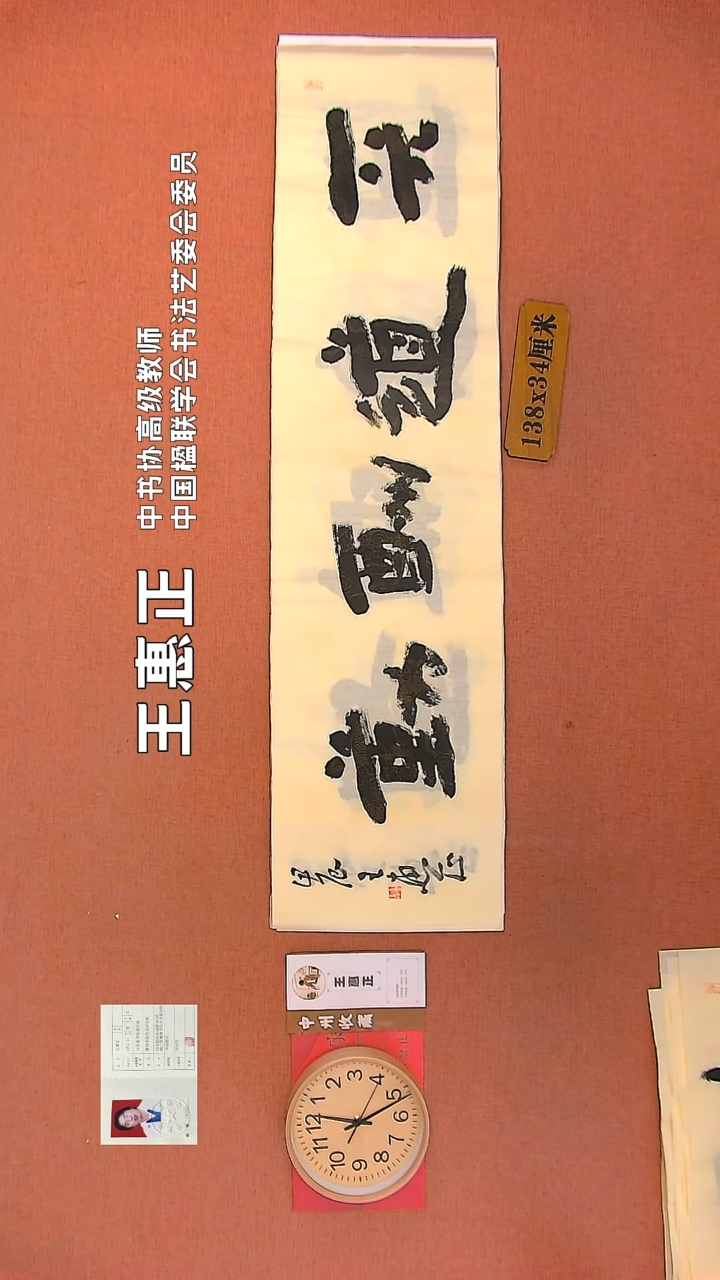 王惠正
中书协高级教师
中国楹联学会书法艺委会委员
天道酬勤
甲辰 王惠正
138x34厘米
王惠正
中州收藏
12 1 2 3 4 5 6 7 8 9 10 11